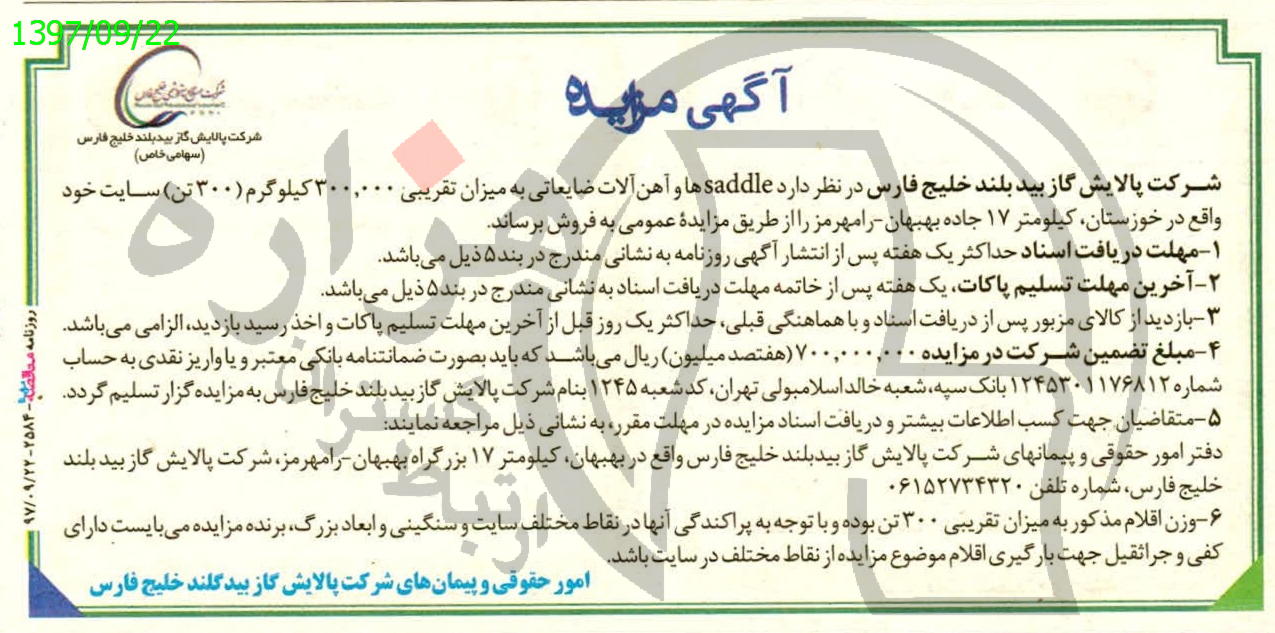 1397/09/22
آگهی مزایده
شرکت پالایش گاز بیدبلند خلیج فارس
(سهامی خاص)
شرکت پالایش گاز بید بلند خلیج فارس در نظر دارد saddle ها و آهن آلات ضایعاتی به میزان تقریبی ۳۰۰,۰۰۰ کیلوگرم (۳۰۰ تن) سایت خود
واقع در خوزستان، کیلومتر ۱۷ جاده بهبهان-رامهرمز را از طریق مزایدهٔ عمومی به فروش برساند.
۱-مهلت دریافت اسناد حداکثر یک هفته پس از انتشار آگهی روزنامه به نشانی مندرج در بند۵ ذیل می‌باشد.
۲-آخرین مهلت تسلیم پاکات، یک هفته پس از خاتمه مهلت دریافت اسناد به نشانی مندرج در بند۵ ذیل می‌باشد.
۳-بازدید از کالای مزبور پس از دریافت اسناد و با هماهنگی قبلی، حداکثر یک روز قبل از آخرین مهلت تسلیم پاکات و اخذ رسید بازدید، الزامی می‌باشد.
۴-مبلغ تضمین شرکت در مزایده ۷۰۰,۰۰۰,۰۰۰ (هفتصد میلیون) ریال می‌باشد که باید بصورت ضمانتنامه بانکی معتبر و یا واریز نقدی به حساب
شماره ۱۲۴۵۳۰۱۱۷۶۸۱۲ بانک سپه، شعبه خالد اسلامبولی تهران، کدشعبه ۱۲۴۵ بنام شرکت پالایش گاز بیدبلند خلیج فارس به مزایده گزار تسلیم گردد.
۵-متقاضیان جهت کسب اطلاعات بیشتر و دریافت اسناد مزایده در مهلت مقرر، به نشانی ذیل مراجعه نمایند:
دفتر امور حقوقی و پیمانهای شرکت پالایش گاز بیدبلند خلیج فارس واقع در بهبهان، کیلومتر ۱۷ بزرگراه بهبهان-رامهرمز، شرکت پالایش گاز بید بلند
خلیج فارس، شماره تلفن ۰۶۱۵۲۷۳۴۳۲۰
۶-وزن اقلام مذکور به میزان تقریبی ۳۰۰ تن بوده و با توجه به پراکندگی آنها در نقاط مختلف سایت و سنگینی و ابعاد بزرگ، برنده مزایده می‌بایست دارای
کفی و جراثقیل جهت بارگیری اقلام موضوع مزایده از نقاط مختلف در سایت باشد.
امور حقوقی و پیمان های شرکت پالایش گاز بیدگلند خلیج فارس
روزنامه مناقصه مزایده - ۲۵۸۴ - ۹۷/۰۹/۲۲
هزاره
ارتباط گستران